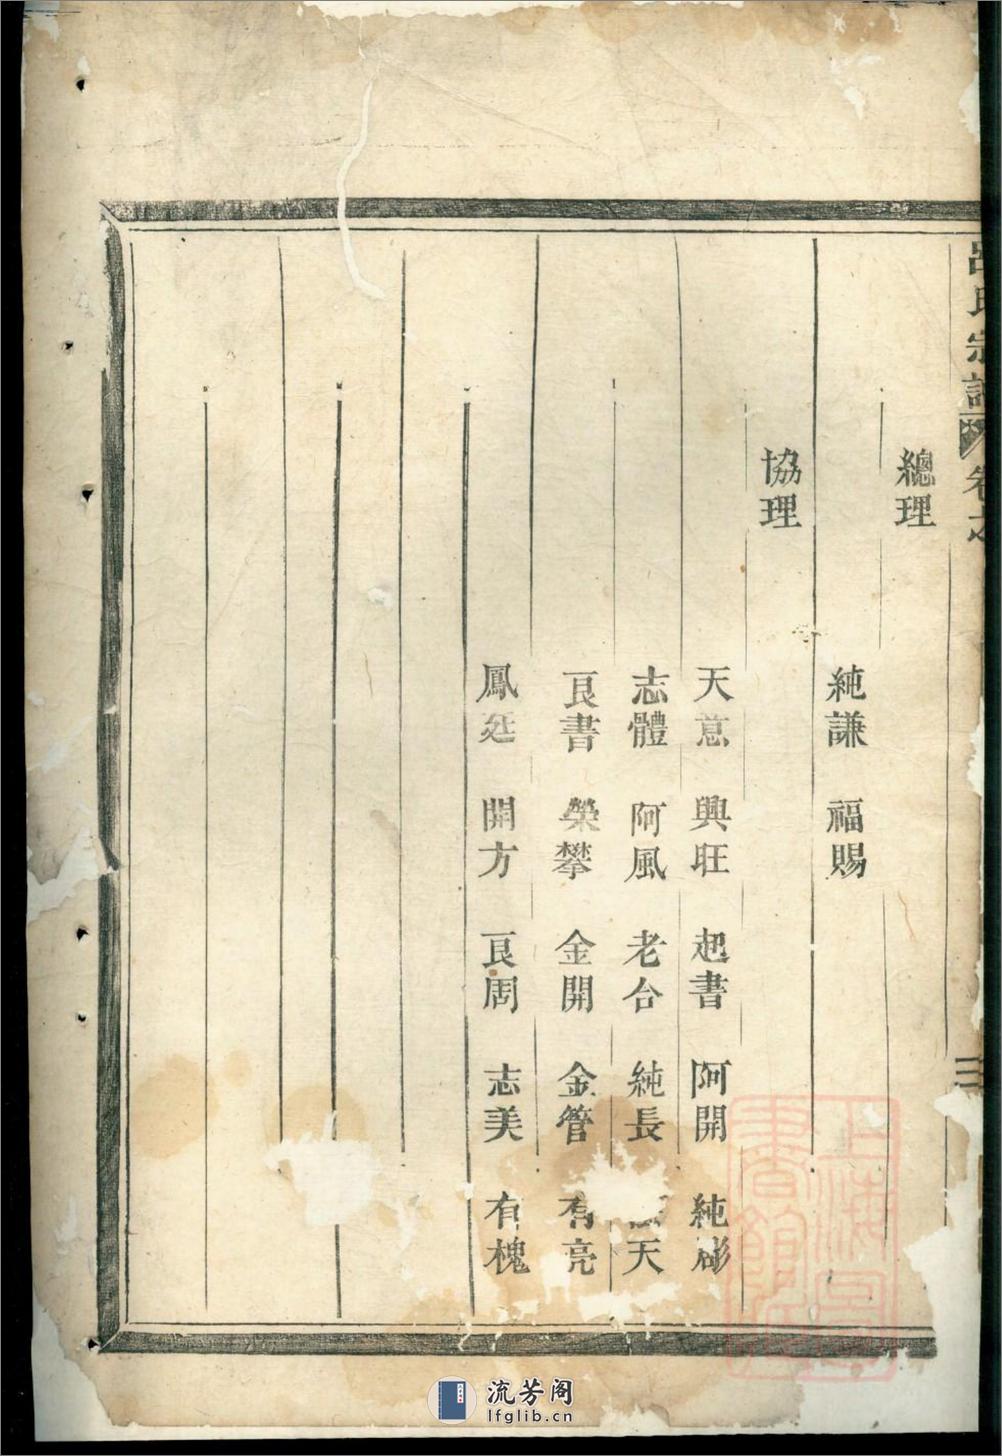 呂氏宗譜
卷之
三
總理
純謙 福賜
協理
天意 興旺 起書 阿開 純彬
志體 阿風 老台 純長 天
良書 榮攀 金開 金管 有亮
鳳廷 開方 良周 志美 有槐
上海圖書館藏
流芳阁
lfglib.cn